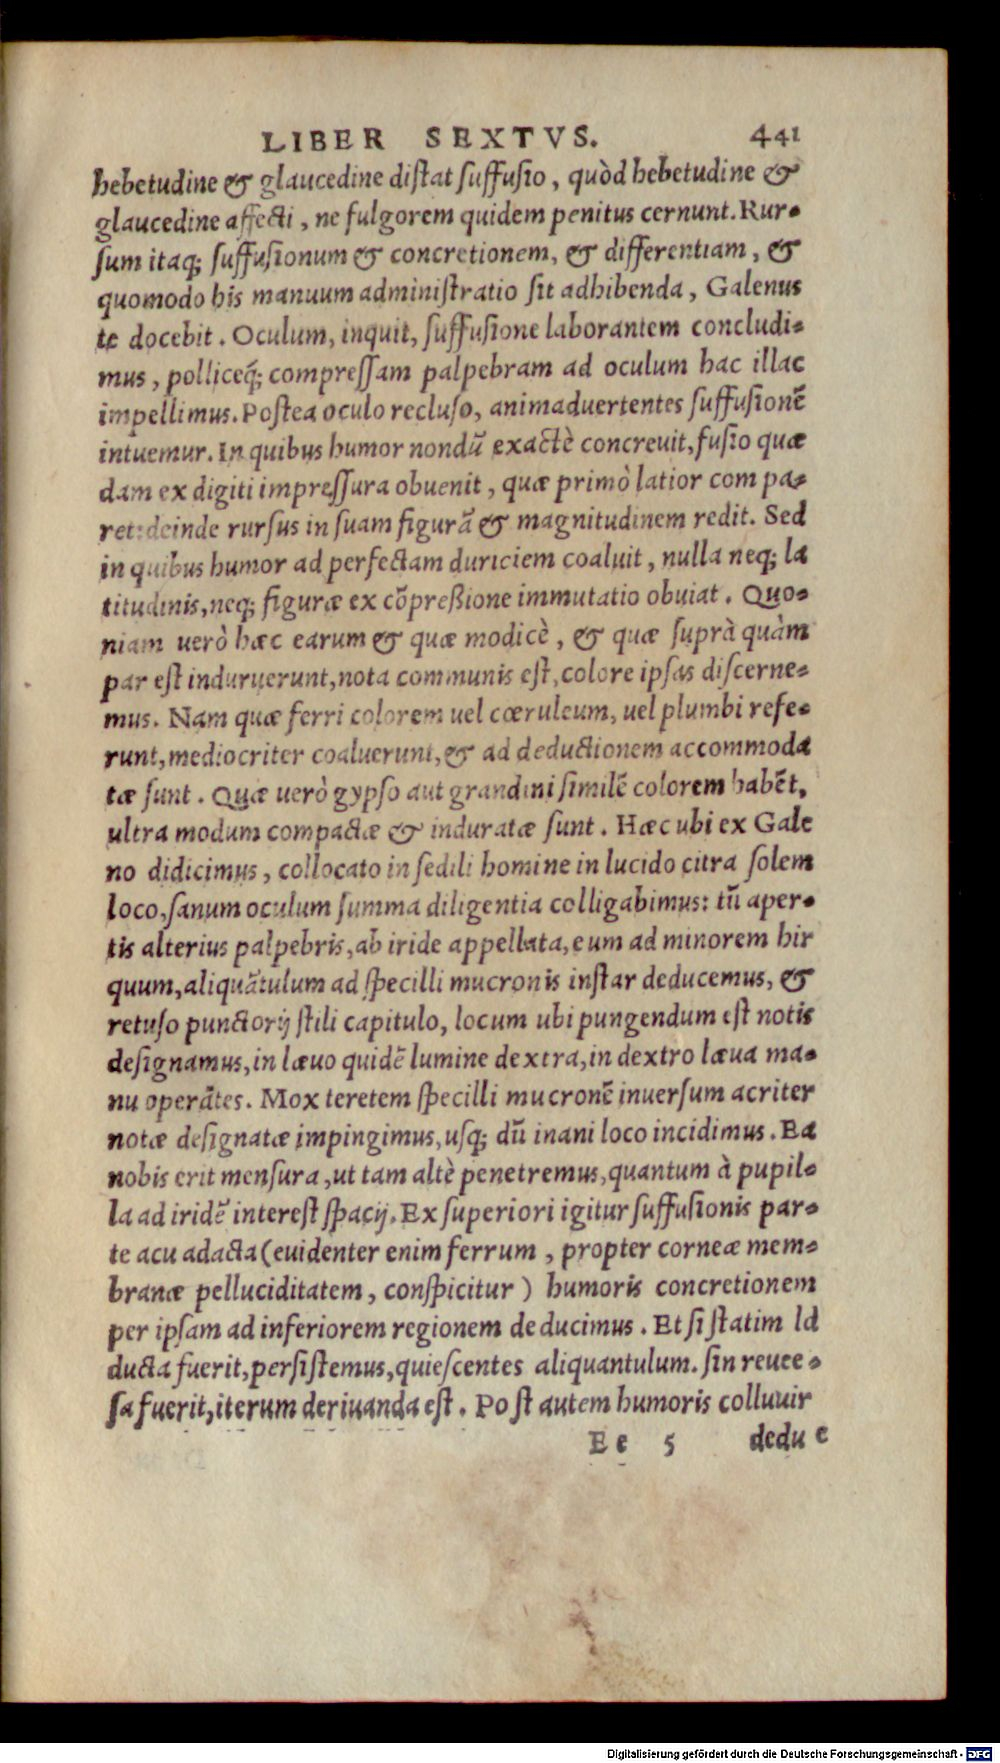 LIBER SEXTVS. 441
hebetudine & glaucedine distat suffusio, quòd hebetudine &
glaucedine affecti, ne fulgorem quidem penitus cernunt. Rur-
sum itaq; suffusionum & concretionem, & differentiam, &
quomodo his manuum administratio sit adhibenda, Galenus
te docebit. Oculum, inquit, suffusione laborantem concludi-
mus, polliceq́; compressam palpebram ad oculum hac illac
impellimus. Postea oculo recluso, animaduertentes suffusionẽ
intuemur. In quibus humor nondũ exactè concreuit, fusio quæ
dam ex digiti impressura obuenit, quæ primò latior com pa-
ret: deinde rursus in suam figurã & magnitudinem redit. Sed
in quibus humor ad perfectam duriciem coaluit, nulla neq; la
titudinis, neq; figuræ ex cõpreßione immutatio obuiat. Quo-
niam uerò hæc earum & quæ modicè, & quæ suprà quàm
par est induruerunt, nota communis est, colore ipsas discerne-
mus. Nam quæ ferri colorem uel cœruleum, uel plumbi refe-
runt, mediocriter coaluerunt, & ad deductionem accommoda
tæ sunt. Quæ uerò gypso aut grandini similẽ colorem habẽt,
ultra modum compactæ & induratæ sunt. Hæc ubi ex Gale
no didicimus, collocato in sedili homine in lucido citra solem
loco, sanum oculum summa diligentia colligabimus: tũ aper-
tis alterius palpebris, ab iride appellata, eum ad minorem hir
quum, aliquãtulum ad specilli mucronis instar deducemus, &
retuso punctorij stili capitulo, locum ubi pungendum est notis
designamus, in læuo quidẽ lumine dextra, in dextro læua ma-
nu operãtes. Mox teretem specilli mucronẽ inuersum acriter
notæ designatæ impingimus, usq; dũ inani loco incidimus. Ea
nobis erit mensura, ut tam altè penetremus, quantum à pupil-
la ad iridẽ interest spacij. Ex superiori igitur suffusionis par-
te acu adacta (euidenter enim ferrum, propter corneæ mem-
branæ pelluciditatem, conspicitur) humoris concretionem
per ipsam ad inferiorem regionem deducimus. Et si statim ld
ducta fuerit, persistemus, quiescentes aliquantulum. sin reuee-
sa fuerit, iterum deriuanda est. Post autem humoris colluuir
Ee 5 dedu e
Digitalisierung gefördert durch die Deutsche Forschungsgemeinschaft - DFG